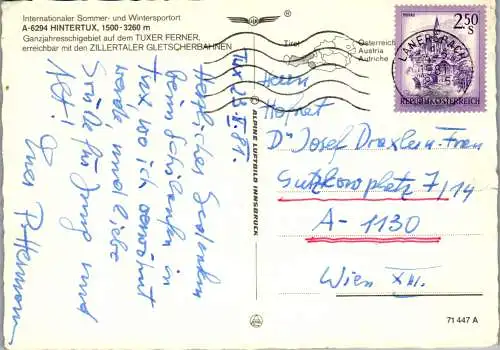 Internationaler Sommer- und Wintersportort
A-6294 HINTERTUX, 1500-3260 m
Ganzjahresschigebiet auf dem TUXER FERNER,
erreichbar mit den ZILLERTALER GLETSCHERBAHNEN
Tirol
Österreich
Austria
Autriche
MURAU
2.50
S
REPUBLIK ÖSTERREICH
LANERSBACH
Tux 23.
Herzliches Gedenken
beim Schilaufen in
Tux wo ich
werde und liebe
Grüße für Jung und
Alt!
Euer P. Hermann
© ALPINE LUFTBILD INNSBRUCK
Herrn
Hofrat
Dr Josef Draxler u. Frau
Gutzkowplatz 7/14
A-1130
Wien XIII.
71 447 A